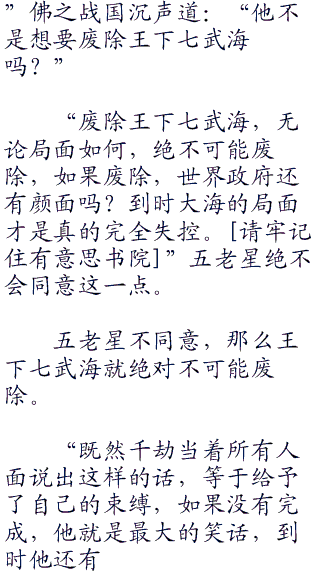 ”佛之战国沉声道：“他不
是想要废除王下七武海
吗？”
“废除王下七武海，无
论局面如何，绝不可能废
除，如果废除，世界政府还
有颜面吗？到时大海的局面
才是真的完全失控。[请牢记
住有意思书院]”五老星绝不
会同意这一点。
五老星不同意，那么王
下七武海就绝对不可能废
除。
“既然千劫当着所有人
面说出这样的话，等于给予
了自己的束缚，如果没有完
成，他就是最大的笑话，到
时他还有